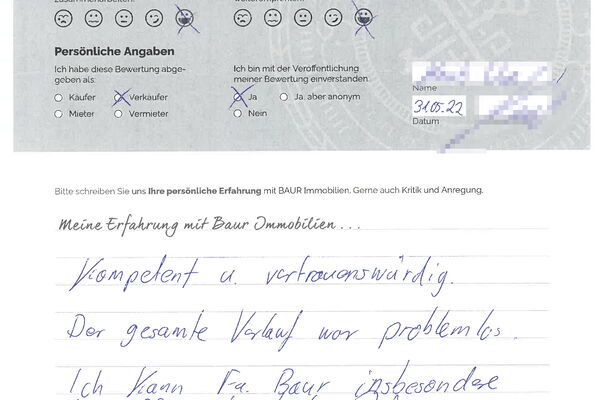 zusammenarbeiten.
weiterempfehlen.
Persönliche Angaben
Ich habe diese Bewertung abge-
geben als:
Käufer Verkäufer
Mieter Vermieter
Ich bin mit der Veröffentlichung
meiner Bewertung einverstanden.
Ja Ja, aber anonym
Nein
Name
31.05.22
Datum
Bitte schreiben Sie uns Ihre persönliche Erfahrung mit BAUR Immobilien. Gerne auch Kritik und Anregung.
Meine Erfahrung mit Baur Immobilien ...
Kompetent u. vertrauenswürdig.
Der gesamte Verlauf war problemlos.
Ich kann Fa. Baur insbesondere